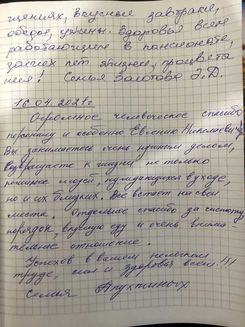 щениях, вкусные завтраки,
обеды, ужины. Здоровья всем
работающим в пансионате,
долгих лет жизни, процвета
ния! Семья Золотова Л.Д.
16.04.2021г
Огромное человеческое спасибо
персоналу и особенно Евгению Николаевичу
Вы занимаетесь очень нужным делом,
возвращаете к жизни не только
пожилых людей, нуждающихся в уходе,
но и их близких. Все встает на свои
места. Отдельное спасибо за чистоту,
порядок, вкусную еду и очень внима
тельное отношение.
Успехов в вашем нелегком
труде, сил и здоровья всем!!!
Семья Апухтиных